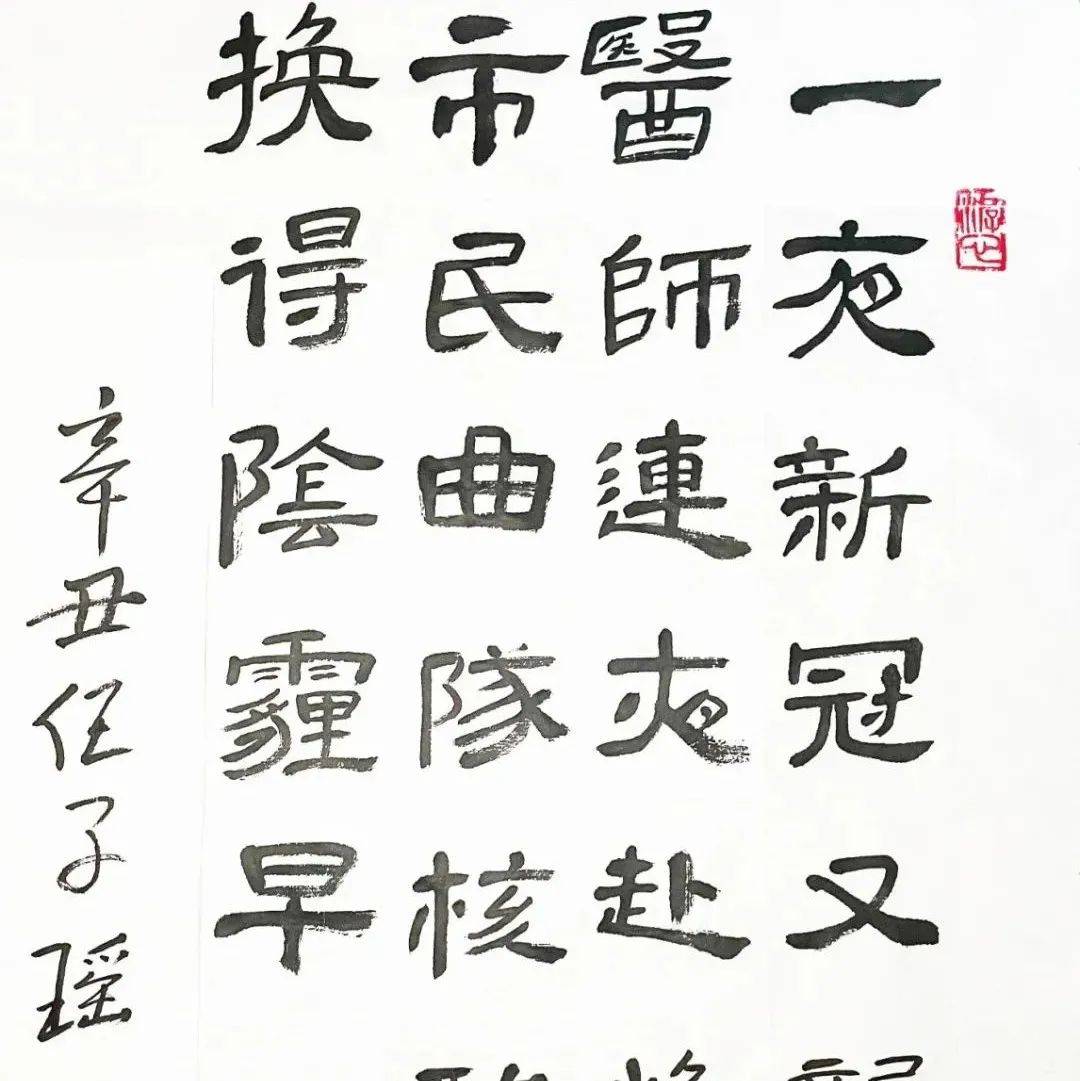 一夜新冠又
醫師連夜赴
市民曲隊核
换得陰霾早
辛丑任子瑶